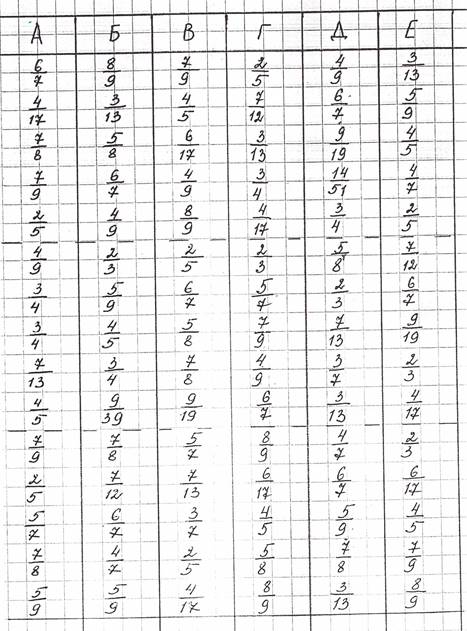 А Б В Г Д Е
6/7 8/9 7/9 2/5 4/9 3/13
4/17 3/13 4/5 7/12 6/7 5/9
7/8 5/8 6/17 3/13 9/19 4/5
7/9 6/7 4/9 3/4 14/51 4/7
2/5 4/9 8/9 4/17 3/4 2/5
4/9 2/3 2/5 2/3 5/8 7/12
3/4 5/9 6/7 5/7 2/3 6/7
3/4 4/5 5/8 7/9 7/13 9/19
7/13 3/4 7/8 4/9 3/7 2/3
4/5 9/39 9/19 6/7 3/13 4/17
7/9 7/8 5/7 8/9 4/7 2/3
2/5 7/12 7/13 6/17 6/7 6/17
5/7 6/7 3/7 4/5 5/9 4/5
7/8 4/7 2/5 5/8 7/8 7/9
5/9 5/9 4/17 8/9 3/13 8/9